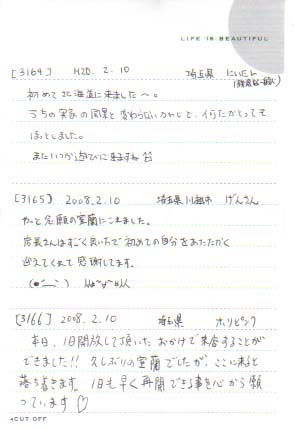 LIFE IS BEAUTIFUL
[3164] H20. 2. 10 埼玉県 にいたん
初めて北海道に来ました～。
うちの実家の風景と変わらないかんじで、
ほっとしました。
またいつか遊びに来ますね
[3165] 2008.2.10 埼玉県川越市 げんさん
やっと念願の室蘭にこれました。
店長さんはすごく良い方で初めての自分をあたたかく
迎えてくれて感謝してます。
[3166] 2008.2.10 埼玉県 ホリピンク
本日、1日開放して頂いたおかげで来舎することが
できました!! 久しぶりの室蘭でしたが、ここに来ると
落ち着きます。1日も早く再開できる事を心から願
っています♡
CUT OFF